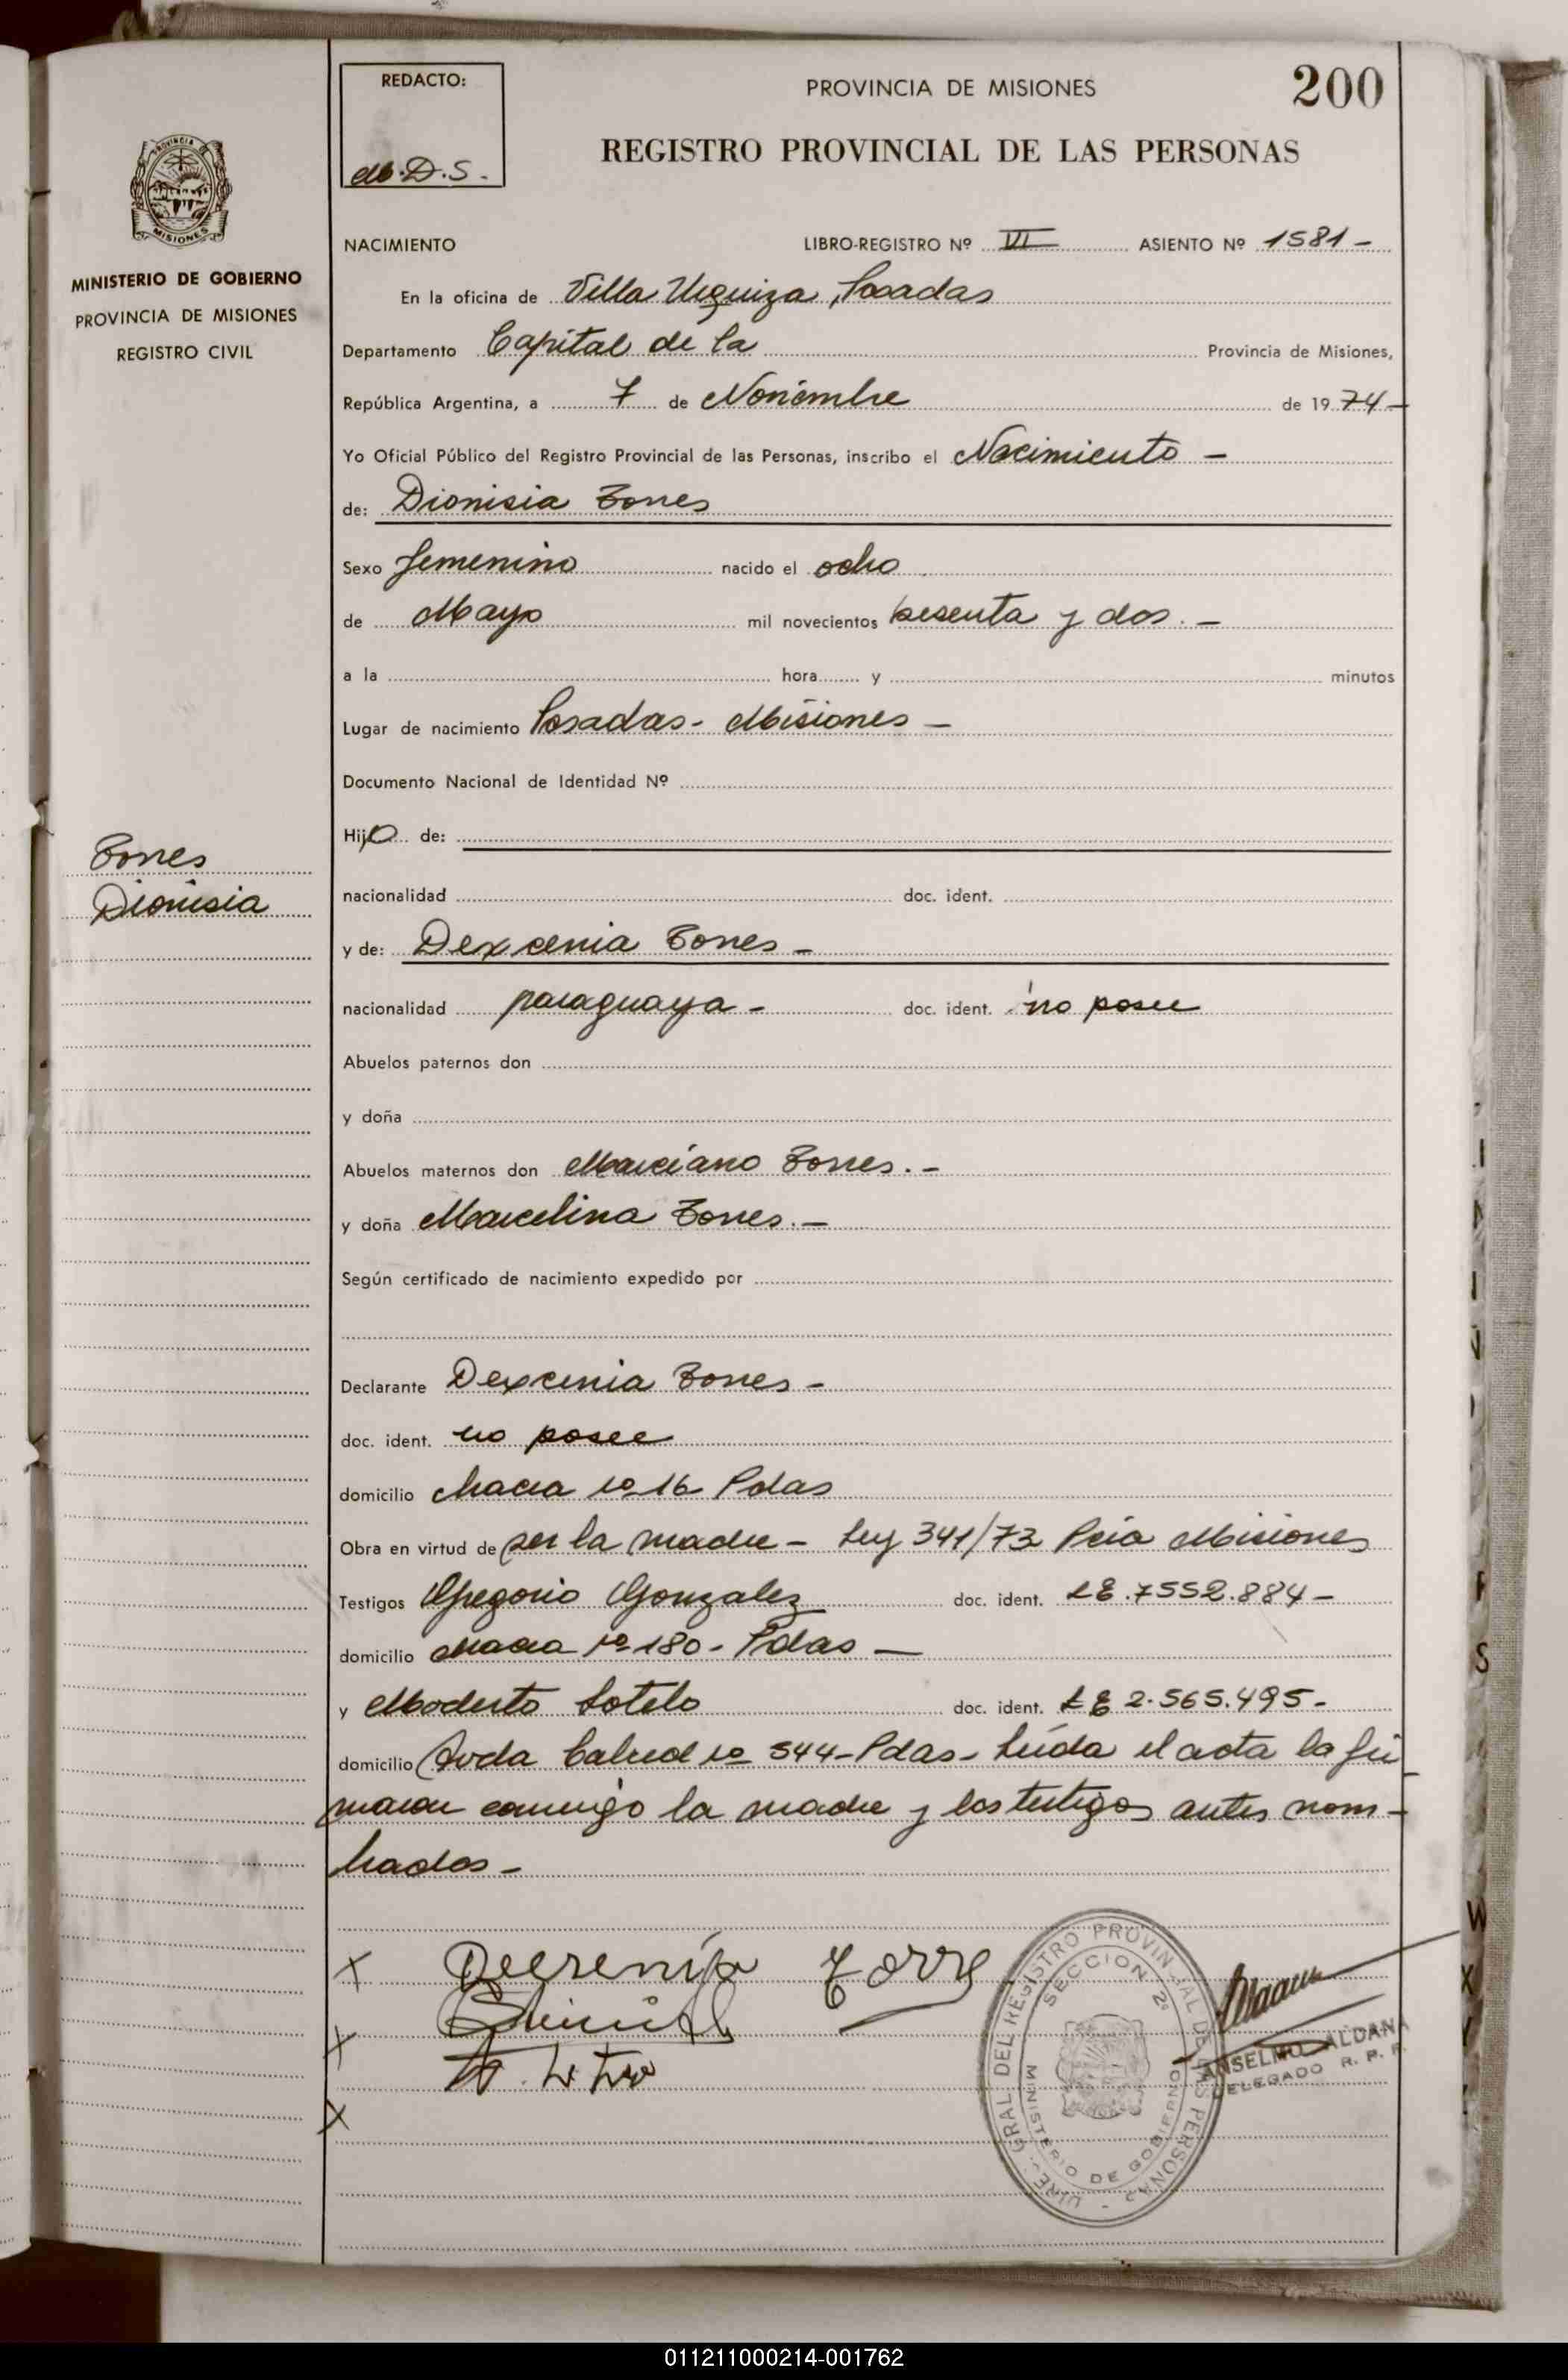 REDACTO:
M.D.S.-
PROVINCIA DE MISIONES
200
REGISTRO PROVINCIAL DE LAS PERSONAS
MISIONES
MINISTERIO DE GOBIERNO
PROVINCIA DE MISIONES
REGISTRO CIVIL
NACIMIENTO LIBRO-REGISTRO Nº VI ASIENTO Nº 1581-
En la oficina de Villa Urquiza, Posadas
Departamento Capital de la Provincia de Misiones,
República Argentina, a 7 de Noviembre de 1974-
Yo Oficial Público del Registro Provincial de las Personas, inscribo el Nacimiento-
de: Dionisia Torres
Sexo femenino nacido el ocho
de Mayo mil novecientos sesenta y dos.-
a la hora y minutos
Lugar de nacimiento Posadas- Misiones-
Documento Nacional de Identidad Nº
Hijo de:
Torres
Dionisia
nacionalidad doc. ident.
y de: Dexcenia Torres-
nacionalidad paraguaya- doc. ident. no posee
Abuelos paternos don
y doña
Abuelos maternos don Marciano Torres.-
y doña Marcelina Torres.-
Según certificado de nacimiento expedido por
Declarante Dexcenia Torres-
doc. ident. no posee
domicilio chacra nº 16 Pdas
Obra en virtud de ser la madre- Ley 341/73 Pcia Misiones
Testigos Gregorio Gonzalez doc. ident. LE.7552.884-
domicilio chacra nº 180- Pdas-
y Modesto Sotelo doc. ident. LE 2.565.495-
domicilio Avda nº 544-Pdas- Leída el acta la fir
maron conmigo la madre y los testigos antes nom-
brados-
X Torre
X
X
DIREC. GRAL DEL REGISTRO PROVINCIAL DE LAS PERSONAS
SECCION 2ª
MINISTERIO DE GOBIERNO
ANSELMO ALDANA
DELEGADO R. P. P.
011211000214-001762